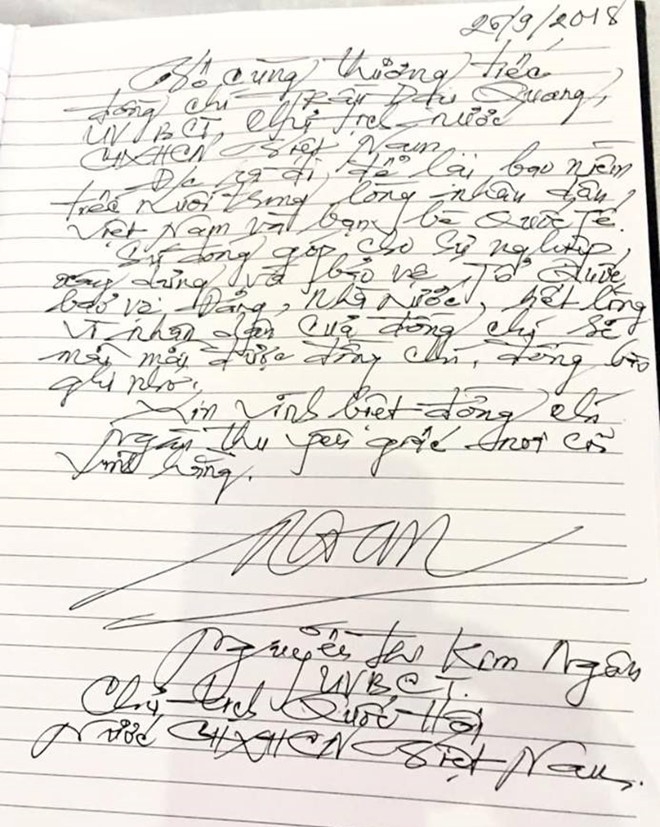 26/9/2018
Vô cùng thương tiếc
đồng chí Trần Đại Quang,
UV BCT, Chủ tịch nước
CHXHCN Việt Nam.
Đ/c ra đi, để lại bao niềm
tiếc nuối trong lòng nhân dân
Việt Nam và bạn bè Quốc Tế.
Sự đóng góp cho sự nghiệp
xây dựng và bảo vệ Tổ Quốc
bảo vệ Đảng, Nhà nước, hết lòng
vì nhân dân của đồng chí sẽ
mãi mãi được đồng chí, đồng bào
ghi nhớ.
Xin vĩnh biệt đồng chí
ngàn thu yên giấc nơi cõi
vĩnh hằng.
Ngân
Nguyễn Thị Kim Ngân
UVBCT.
Chủ tịch Quốc Hội
Nước CHXHCN Việt Nam.